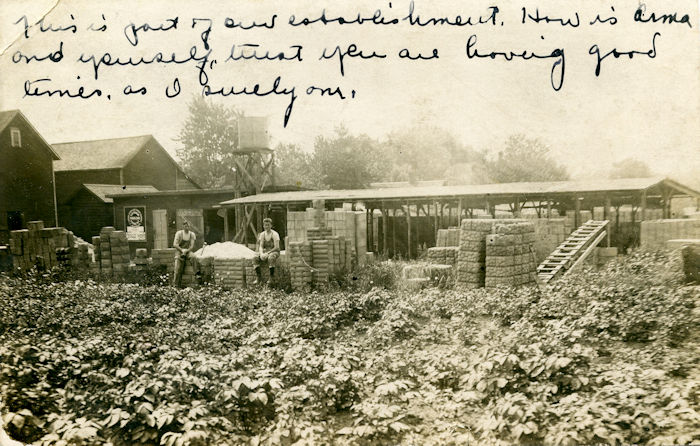 This is part of our establishment. How is Arma
and yourself, trust you are having good
times, as I surely am.